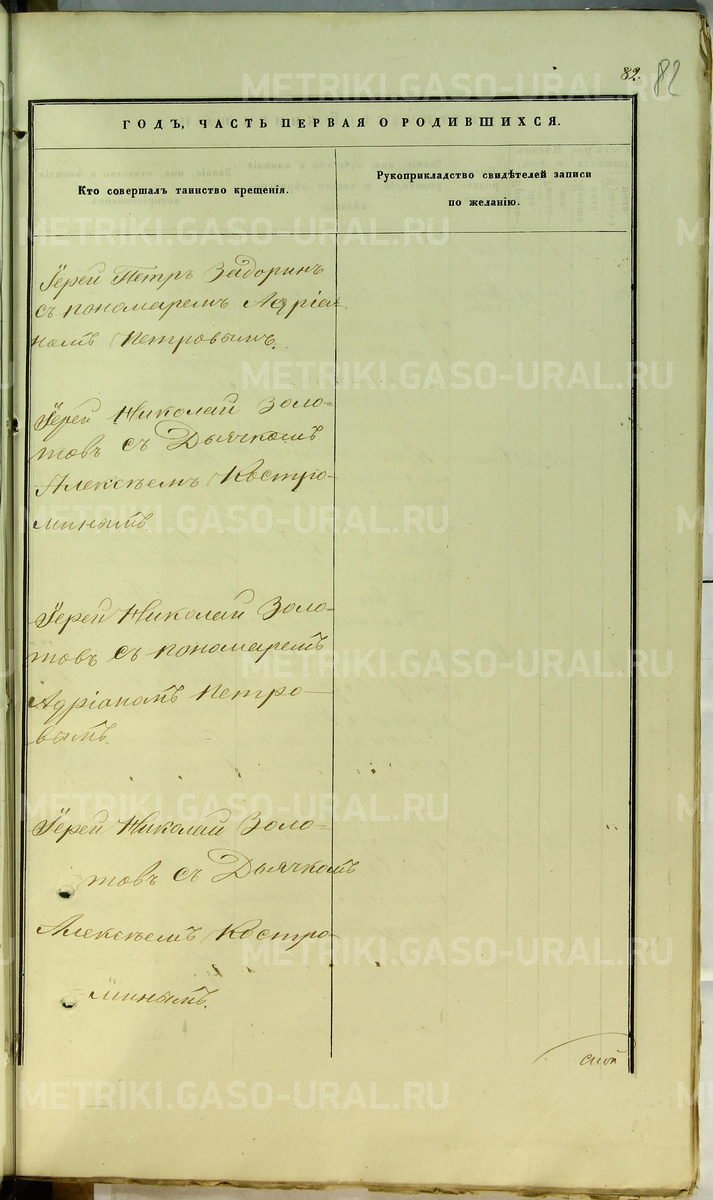 82.
82
ГОДЪ, ЧАСТЬ ПЕРВАЯ О РОДИВШИХСЯ.
Кто совершалъ таинство крещенія.
Рукоприкладство свидѣтелей записи
по желанію.
Іерей Петръ Задоринъ
съ пономаремъ Адріа-
номъ Петровымъ.
Іерей Николай Золо-
товъ съ Дьячкомъ
Алексѣемъ Костро-
минымъ.
Іерей Николай Золо-
товъ съ пономаремъ
Адріаномъ Петро-
вымъ.
Іерей Николай Золо-
товъ съ Дьячкомъ
Алексѣемъ Костро-
минымъ.
METRIKI.GASO-URAL.RU
METRIKI.GASO-URAL.RU
METRIKI.GASO-URAL.RU
METRIKI.GASO-URAL.RU
METRIKI.GASO-URAL.RU
METRIKI.GASO-URAL.RU
METRIKI.GASO-URAL.RU
METRIKI.GASO-URAL.RU